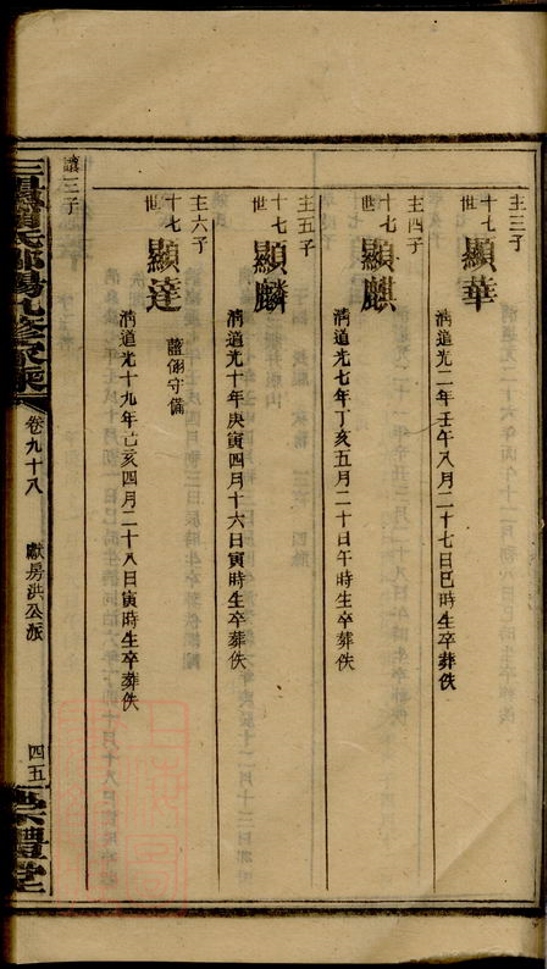 主三子
十七世
顯華
清道光二年壬午八月二十七日巳時生卒葬佚
主四子
十七世
顯麒
清道光七年丁亥五月二十日午時生卒葬佚
主五子
十七世
顯麟
清道光十年庚寅四月十六日寅時生卒葬佚
主六子
十七世
顯達
藍翎守備
清道光十九年己亥四月二十八日寅時生卒葬佚
讓三子
卷九十八
獻房洪公派
四五